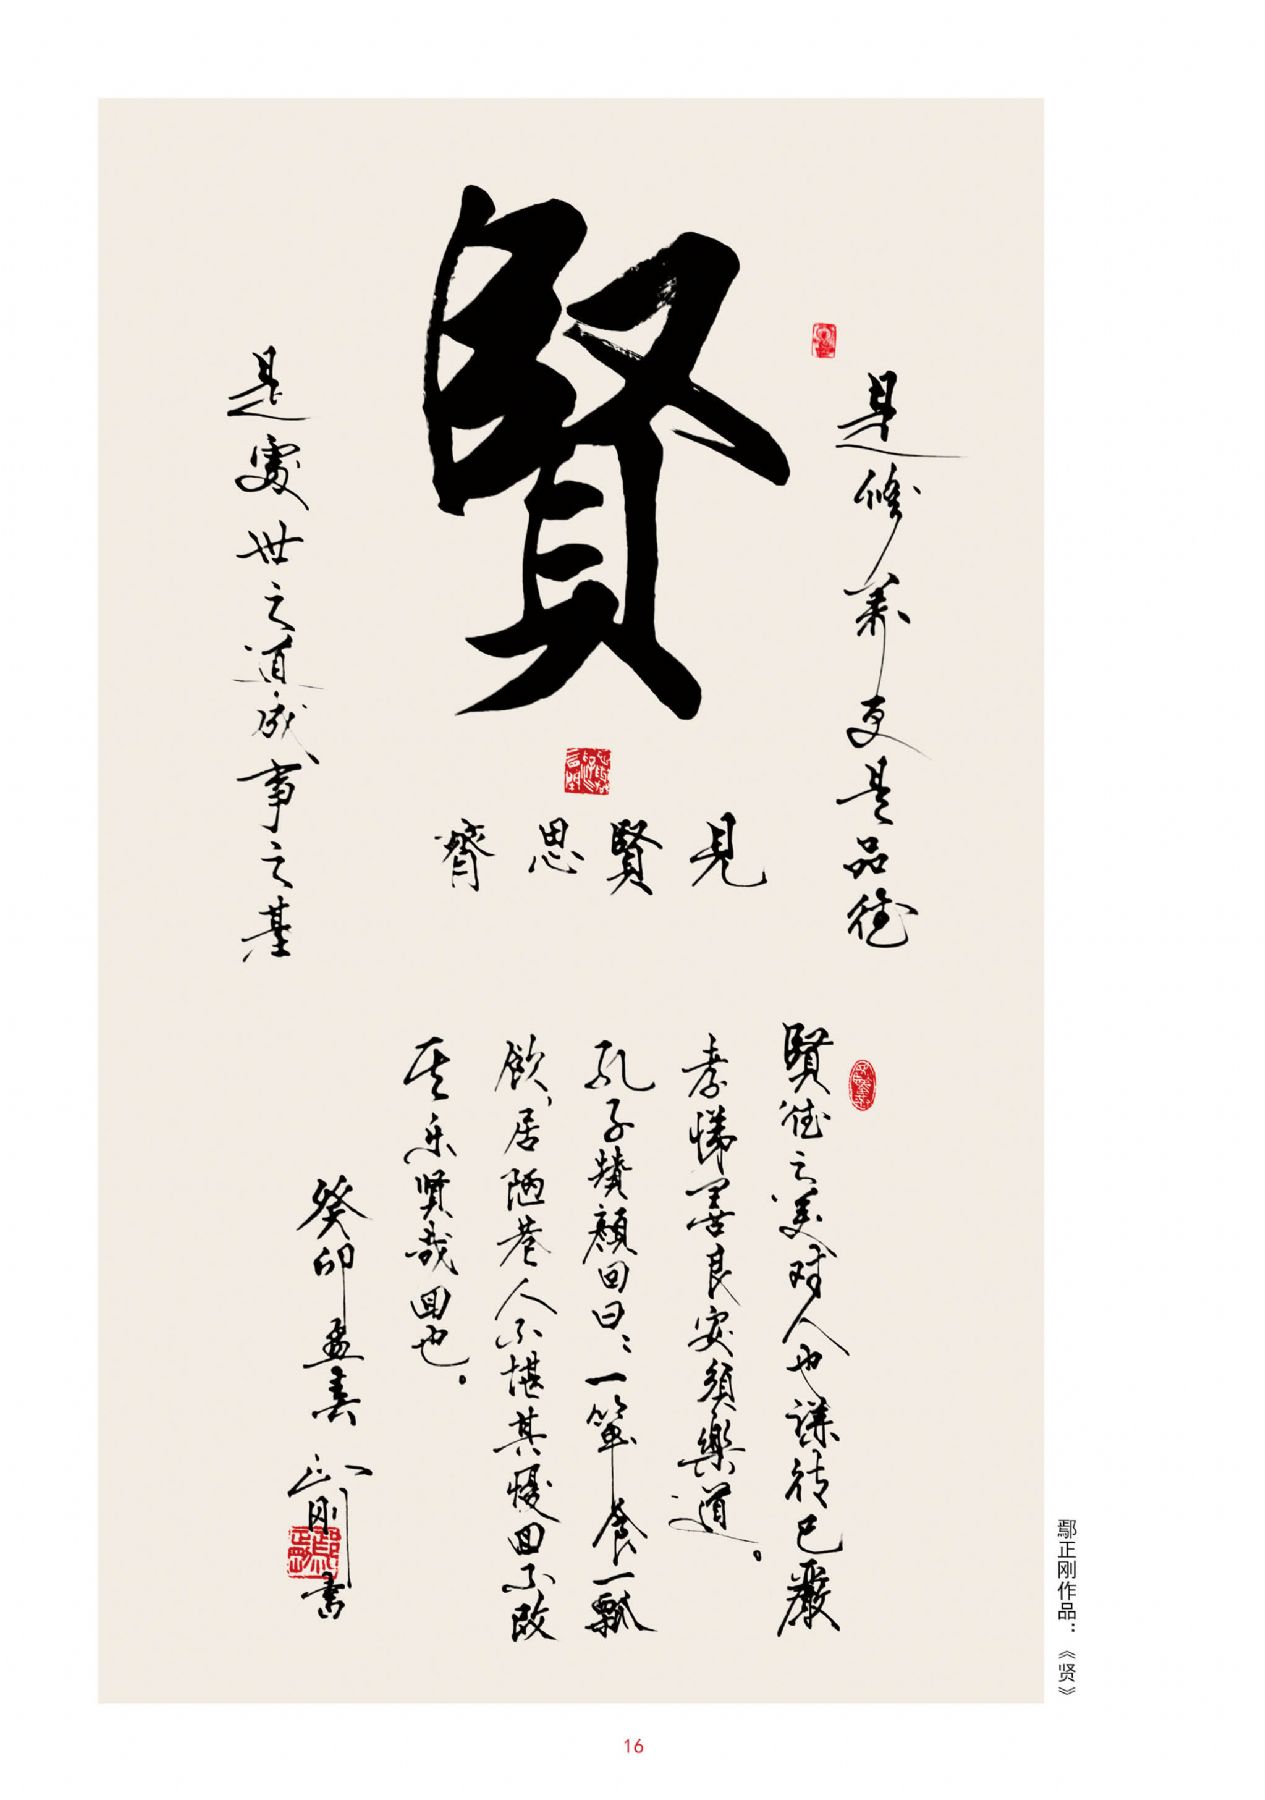 賢
是修养更是品德
是處世之道成事之基
見賢思齊
賢德之美对人也谦待己嚴
孝悌善良安須樂道。
孔子赞顏回曰：一簞食一瓢
飲，居陋巷人不堪其憂回不改
其乐賢哉回也。
癸卯孟春 正刚书
鄢正刚作品：《贤》
16